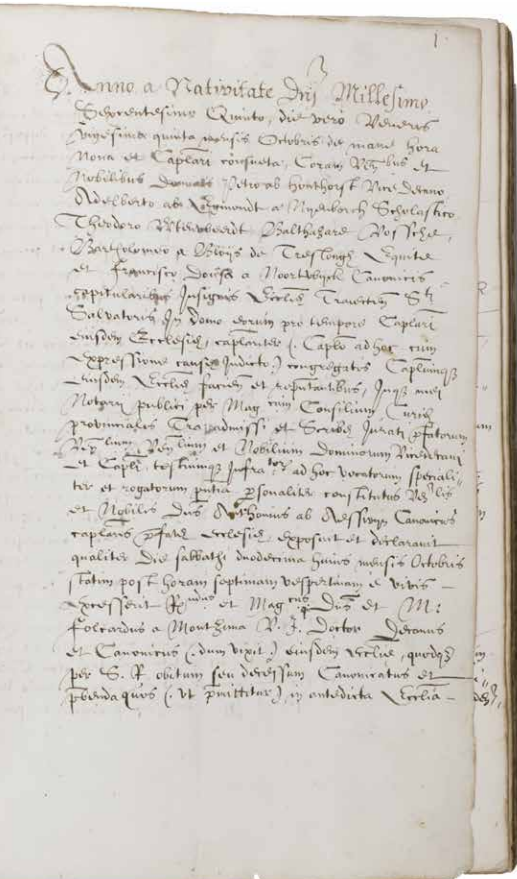 1.
Anno a Nativitate Dnj Millesimo
Sexcentesimo Quinto, die vero Veneris
vigesima quinta mensis Octobris de mane hora
Nona et Caplari consueta, Coram
Nobilibus Petro ab Honthorst Vice decano
Adelberto ab Egmondt a Nyenborch Scholastico
Theodoro Balthazare Vossche,
Bartholomeo a Bloys de Treslongh Equite
et Francisco Dousa a Noortwyck Canonicis
capitularibus Insignis Ecclie Traiecten Sti
Salvatoris In domo eorum pro tempore Caplari
eiusdem Ecclesie, caplariter (. Caplo ad hoc cum
expressione cause Indicto.) congregatis Caplumque
eiusdem Ecclie facien et reputantibus, Inque mei
Notarij publici per Mag cum Consilium Curie
provinciales admissi et Scribe Jurati pfatorum
et Nobilium Dominorum Vicedecani
et Capli, testiumque Infra ad hoc vocatorum speciali-
ter et rogatorum pntia psonaliter constitutus
et Nobilis Dns Anthonius ab Aesswyn Canonicus
caplaris pfate ecclesie, exposuit et declaravit
qualiter Die sabbathi duodecima huius mensis Octobris
statim post horam septimam vespertinam e vivis -
excesserit Rndus et Mag cus Dns et M:
Folcardus a Montzima V. J. Doctor Decanus
et Canonicus (. dum vixit.) eiusdem Ecclie, quodque
per S. R. obitum seu decessum Canonicatus et -
pbenda quos (. ut pmittitur) in antedicta Ecclia -